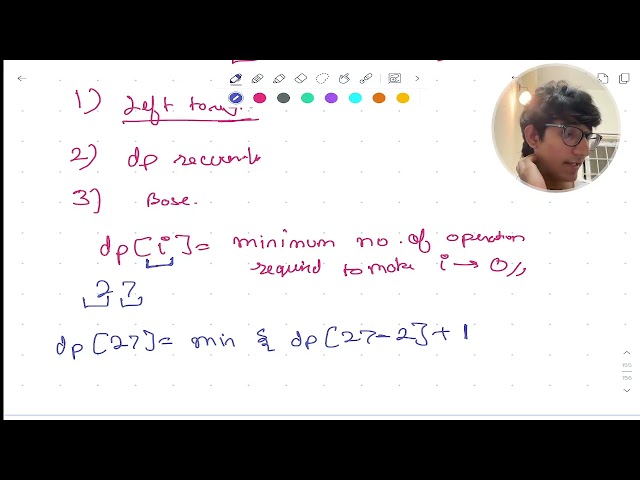 1) Left to
2) dp recurrente
3] Base.
dp[i] = minimum no. of operation
requird to make i → 0//
27
dp[27] = min { dp[27-2] + 1
195
196